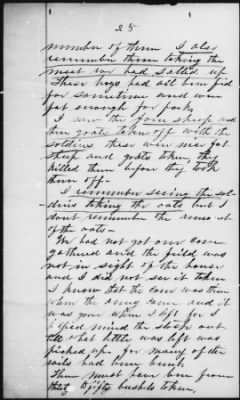 25
number of them I also
remember them taking the
meat we had salted up
These hogs had all been fed
for sometime and were
fat enough for pork,
I saw the four sheep and
two goats taken off with the
soldiers these were our fat
sheep and goats taken, they
killed them before they took
them off-
I remember seeing the sol-
diers taking the oats but I
dont remember the amount
of the oats-
We had not got our corn
gathered and the field was
not in sight of the house
and I did not see it taken
I know that the corn was there
when the army came and it
was gone when I left for I
helped mind the stock out
what little was left was
picked up, for many of the
rails had been burnt
There must have been from
to fifty bushels taken.